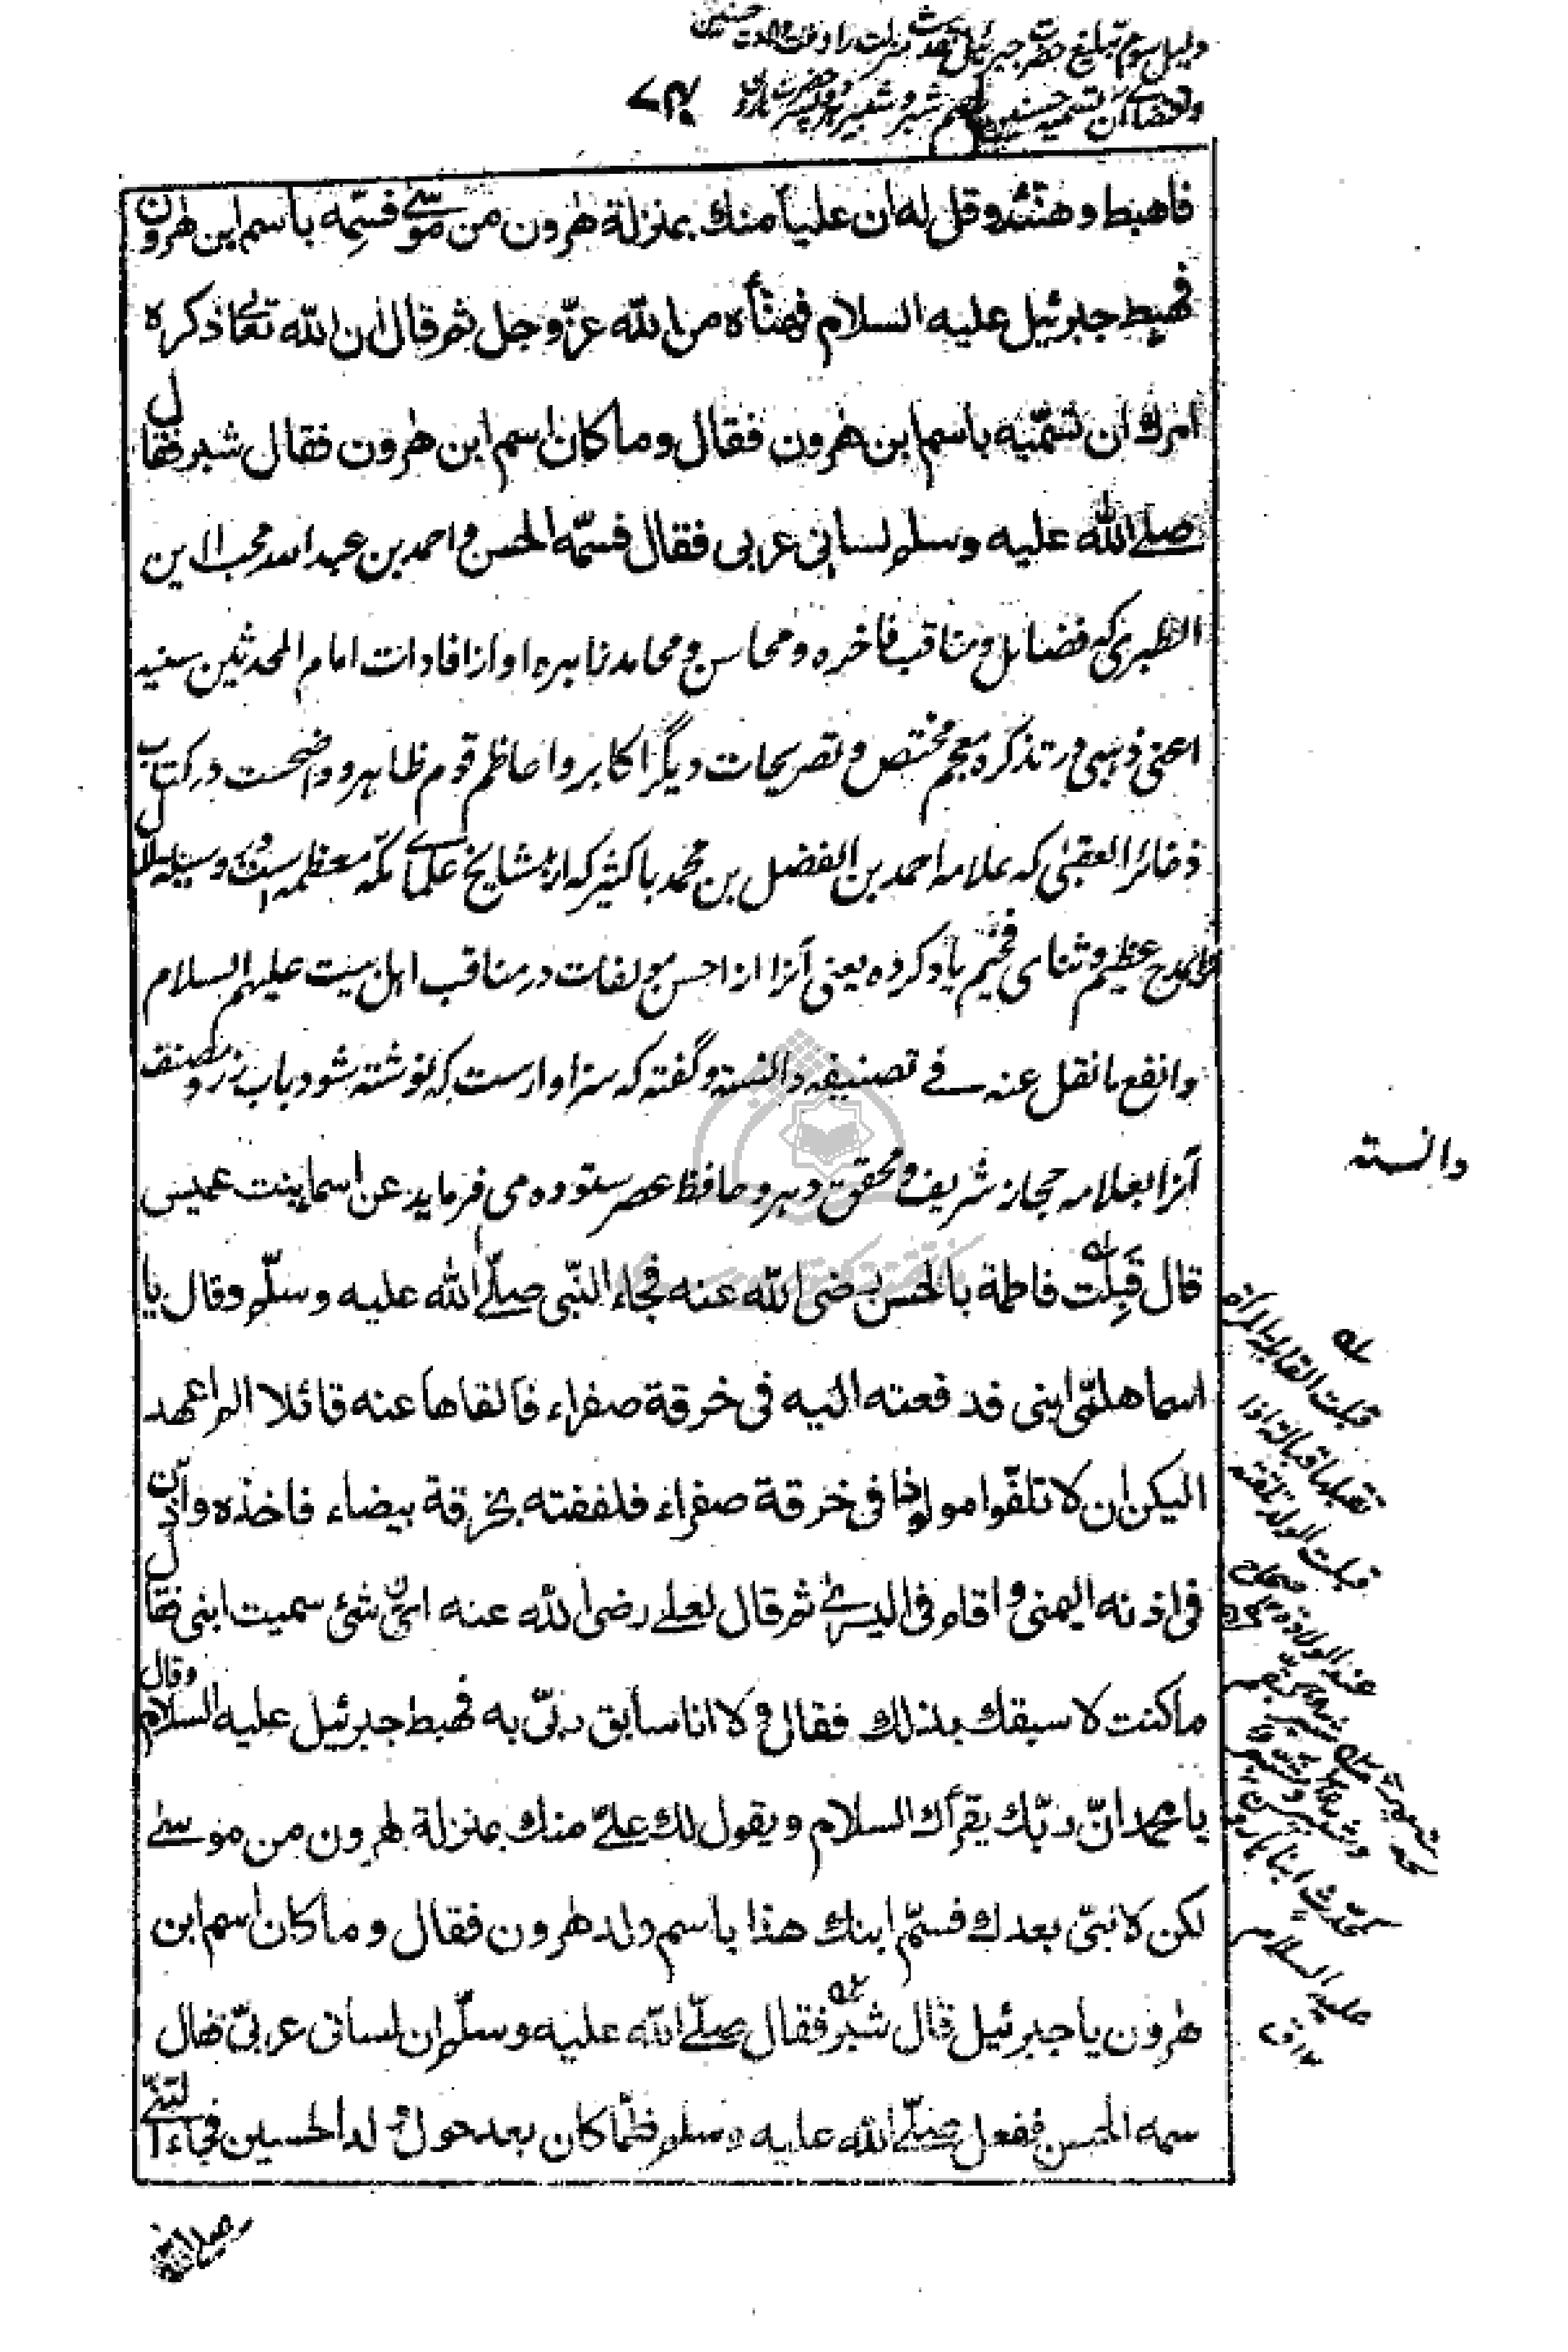 دلیل سوم تبلیغ حضرت جبرئیل حدیث منزلت را وقت ولادت حسنین
۷۳۴
فاهبط وهنئه وقل له ان علیا منك بمنزلة هٰرون من موسے فسمّه باسم ابن هٰرون
فهبط جبرئیل علیه السلام فهنّأه من الله عزّ وجل ثم قال ان الله تعالی ذکره
امرك ان تسمّیه باسم ابن هٰرون فقال وما کان اسم ابن هٰرون فقال شبر فقال
صلے الله علیه وسلم لسانی عربی فقال فسمّه الحسن و احمد بن عبد الله محب الدین
الطبری که فضائل و مناقب فاخره و محاسن و محامد زاهره او از افادات امام المحدثین سنیه
اعنی ذهبی در تذکره و معجم مختص و تصریحات دیگر اکابر و اعاظم قوم ظاهر و واضحست در کتاب
ذخائر العقبیٰ که علامه احمد بن الفضل بن محمد باکثیر که از مشایخ علمای مکّه معظمه است در وسیلة المآل
مدح عظیم و ثنای فخیم یاد کرده یعنی آنرا از احسن مولفات در مناقب اهل بیت علیهم السلام
و انفع ما نقل عنه فے تصنیفه دانسته و گفته که سزاوارست که نوشته شود بآب زر و مصنف
آنرا بعلامه حجاز شریف و محقق دهر و حافظ عصر ستوده می فرماید عن اسما بنت عمیس
قال قَبِلَت فاطمة بالحسن رضی الله عنه فجاء النّبی صلّے الله علیه وسلّم وقال یا
اسما هلمّی ابنی فدفعته الیه فی خرقة صفراء فالقاها عنه قائلا الم اعهد
الیکن ان لا تلفّوا مولودا فی خرقة صفراء فلففته بخرقة بیضاء فاخذه و اذّن
فی اذنه الیمنی و اقام فی الیسریٰ ثم قال لعلے رضی الله عنه ایّ شئ سمیت ابنی فقال
ما کنت لاسبقك بذلك فقال و لا انا سابق ربّی به فهبط جبرئیل علیه السلام وقال
یا محمد انّ ربّك یقرأك السلام و یقول لك علیّ منك بمنزلة هٰرون من موسیٰ
لکن لا نبیّ بعدك فسمّ ابنك هذا باسم ولد هٰرون فقال وما کان اسم ابن
هٰرون یا جبرئیل قال شبّر فقال صلّے الله علیه وسلّم ان لسانی عربیّ فقال
سمه الحسن ففعل صلّے الله علیه وسلم فلمّا کان بعد حول ولد الحسین فجاء النّبی
دانسته
قبلت القابلة المرأة
تقبلها قبالة اذا
قبلت الولد تلقته
عند الولادة
علیه السلام